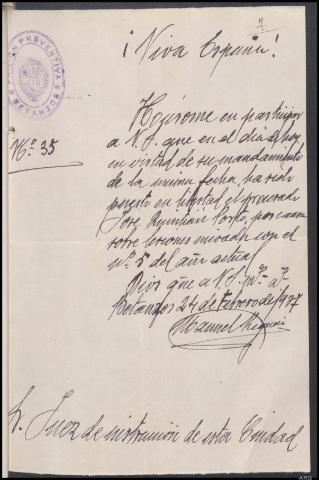 ¡Viva España!
PRISION PREVENTIVA
BETANZOS
Nº 35
Hónrome en participar
a V.S. que en el día de hoy
en virtud de su mandamiento
de la misma fecha, ha sido
puesto en libertad el procesado
José Quintián, por causa
sobre lesiones incoada con el
nº 5 del año actual
Dios gue a V.S. ms. as.
Betanzos 24 de Febrero de 1937
Manuel
Sr. Juez de instrucción de esta Ciudad